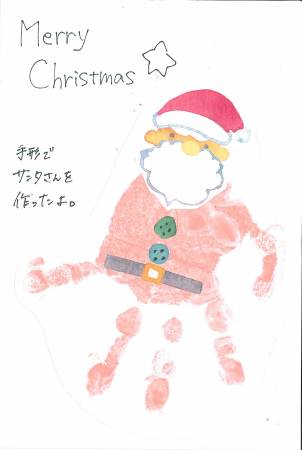 Merry
Christmas
手形で
サンタさんを
作ったよ。